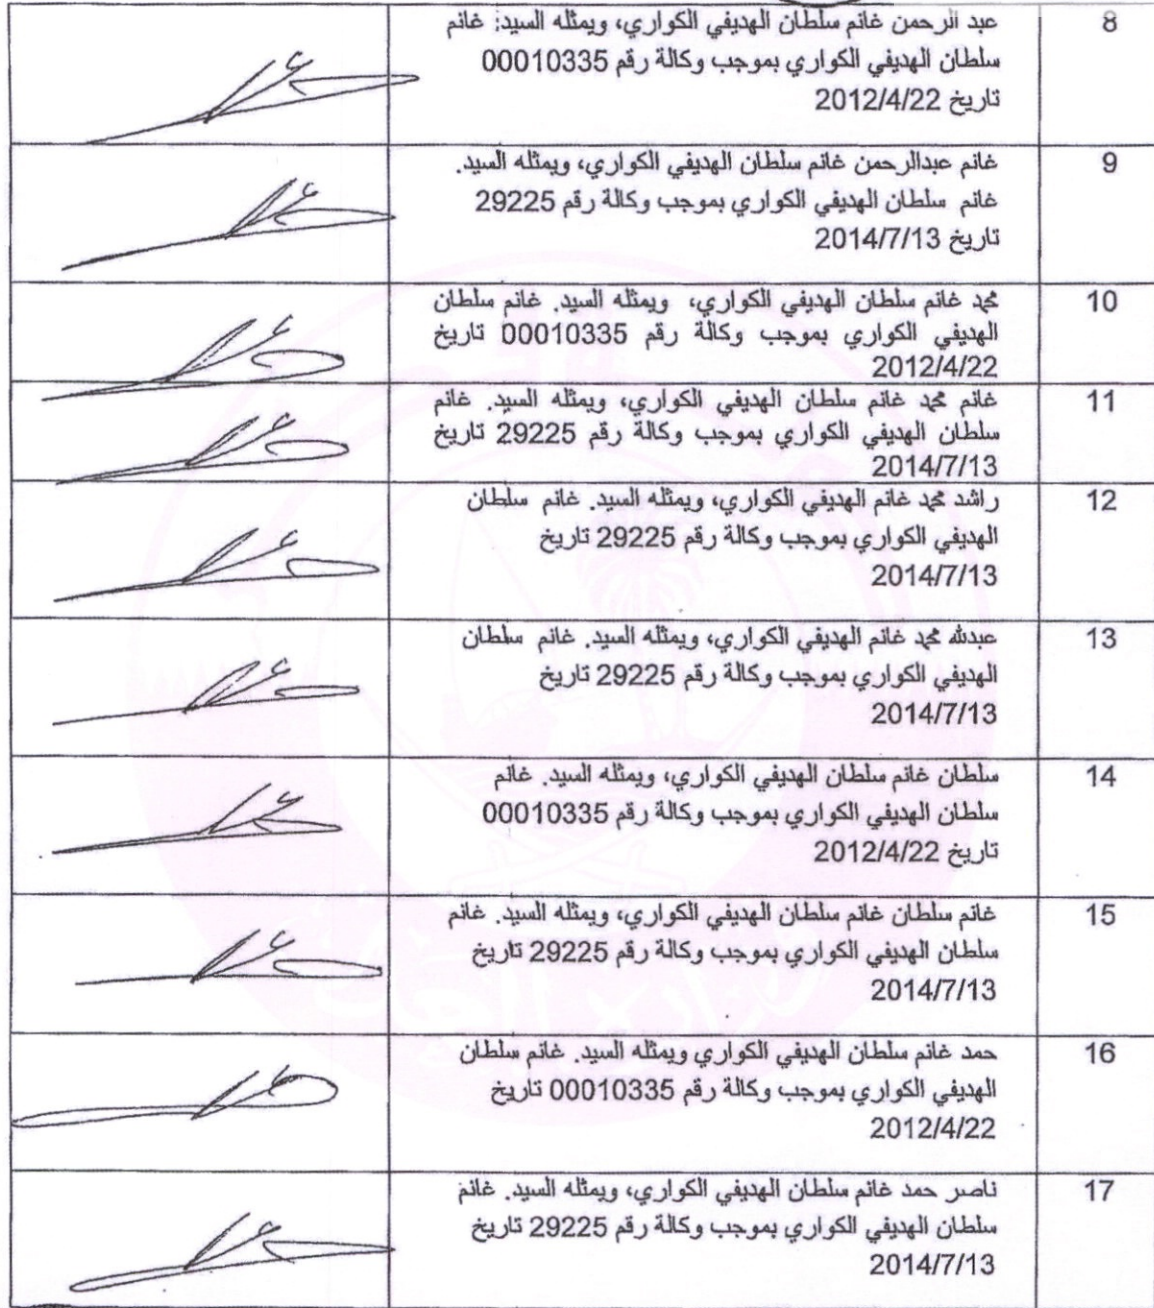 8
عبد الرحمن غانم سلطان الهديفي الكواري، ويمثله السيد: غانم
سلطان الهديفي الكواري بموجب وكالة رقم 00010335
تاريخ 2012/4/22
9
غانم عبدالرحمن غانم سلطان الهديفي الكواري، ويمثله السيد.
غانم سلطان الهديفي الكواري بموجب وكالة رقم 29225
تاريخ 2014/7/13
10
محمد غانم سلطان الهديفي الكواري، ويمثله السيد. غانم سلطان
الهديفي الكواري بموجب وكالة رقم 00010335 تاريخ
2012/4/22
11
غانم محمد غانم سلطان الهديفي الكواري، ويمثله السيد. غانم
سلطان الهديفي الكواري بموجب وكالة رقم 29225 تاريخ
2014/7/13
12
راشد محمد غانم الهديفي الكواري، ويمثله السيد. غانم سلطان
الهديفي الكواري بموجب وكالة رقم 29225 تاريخ
2014/7/13
13
عبدلله محمد غانم الهديفي الكواري، ويمثله السيد. غانم سلطان
الهديفي الكواري بموجب وكالة رقم 29225 تاريخ
2014/7/13
14
سلطان غانم سلطان الهديفي الكواري، ويمثله السيد. غانم
سلطان الهديفي الكواري بموجب وكالة رقم 00010335
تاريخ 2012/4/22
15
غانم سلطان غانم سلطان الهديفي الكواري، ويمثله السيد. غانم
سلطان الهديفي الكواري بموجب وكالة رقم 29225 تاريخ
2014/7/13
16
حمد غانم سلطان الهديفي الكواري ويمثله السيد. غانم سلطان
الهديفي الكواري بموجب وكالة رقم 00010335 تاريخ
2012/4/22
17
ناصر حمد غانم سلطان الهديفي الكواري، ويمثله السيد. غانم
سلطان الهديفي الكواري بموجب وكالة رقم 29225 تاريخ
2014/7/13